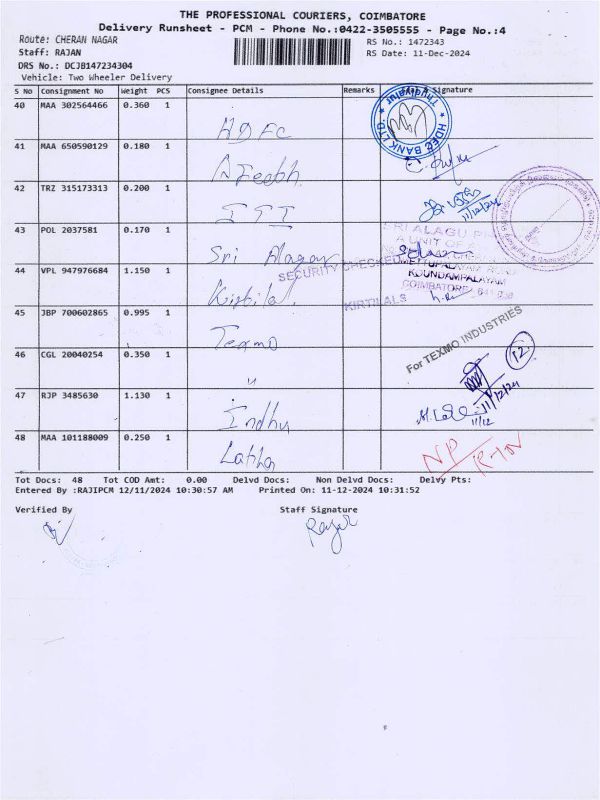 THE PROFESSIONAL COURIERS, COIMBATORE
Delivery Runsheet - PCM - Phone No.:0422-3505555 - Page No.:4
Route: CHERAN NAGAR
RS No.: 1472343
Staff: RAJAN
RS Date: 11-Dec-2024
DRS No.: DCJB147234304
Vehicle: Two Wheeler Delivery
S No Consignment No Weight PCS Consignee Details Remarks & Signature
40 MAA 302564466 0.360 1 HDFC
HDFC BANK LTD. Thudiyalur
41 MAA 650590129 0.180 1
42 TRZ 315173313 0.200 1 ITI
11/12/24
43 POL 2037581 0.170 1 Sri Alagar
SRI ALAGU
A UNIT OF
44 VPL 947976684 1.150 1 Kirtilal
SECURITY CHECKED METTUPALAYAM ROAD
KOUNDAMPALAYAM
COIMBATORE
KIRTILALS
45 JBP 700602865 0.995 1 Texmo
For TEXMO INDUSTRIES
46 CGL 20040254 0.350 1 "
12.
11/12/24
47 RJP 3485630 1.130 1 Indhu
11/12
48 MAA 101188009 0.250 1 Latha
NP
Tot Docs: 48 Tot COD Amt: 0.00 Delvd Docs: Non Delvd Docs: Delvy Pts:
Entered By :RAJIPCM 12/11/2024 10:30:57 AM Printed On: 11-12-2024 10:31:52
Verified By Staff Signature